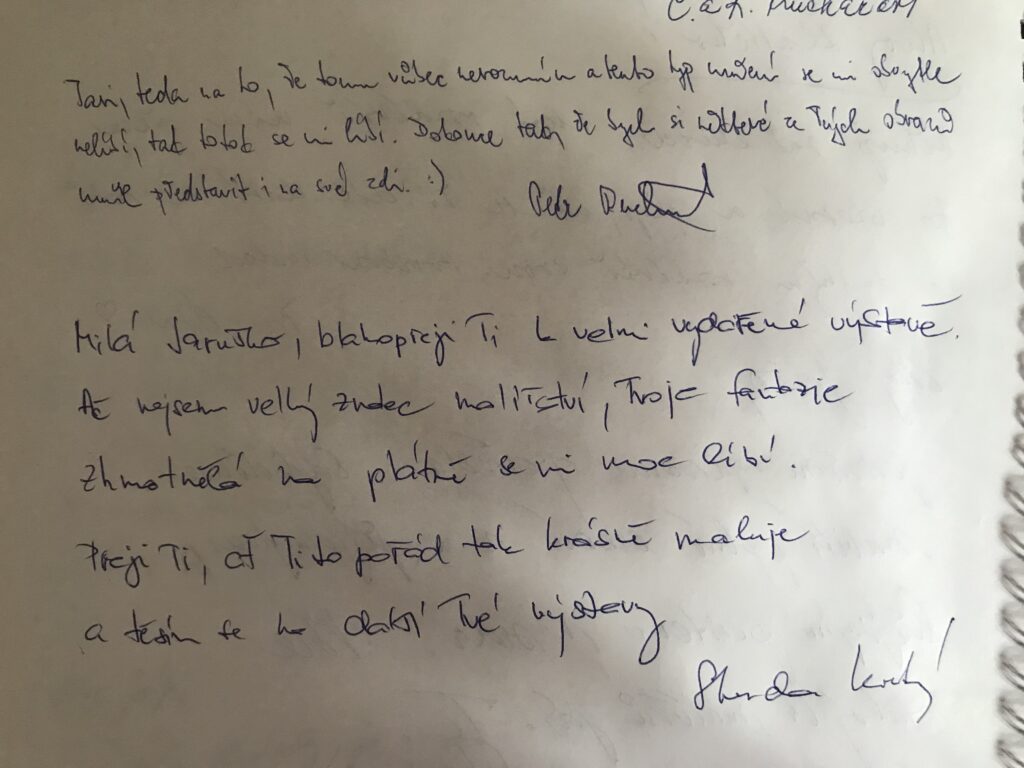 C. a K.
Jari, teda na to, že tomu vůbec nerozumím a tento typ umění se mi obvykle
nelíbí, tak totok se mi líbí. Dokonce tak, že bych si některé z Tvých obrazů
umíl představit i na své zdi. :)
Petr
Milá Jaruško, blahopřeji Ti k velmi vydařené výstavě.
Ač nejsem velký znalec malířství, Tvoje fantazie
zhmotnělá na plátně se mi moc líbí.
Přeji Ti, ať Ti to pořád tak krásně maluje
a těším se na další Tvé výstavy